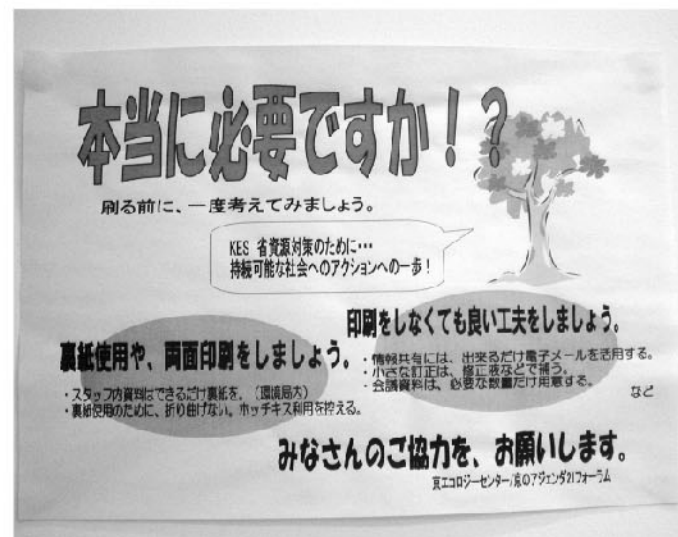 本当に必要ですか！？
刷る前に、一度考えてみましょう。
KES 省資源対策のために…
持続可能な社会へのアクションへの一歩！
印刷をしなくても良い工夫をしましょう。
・情報共有には、出来るだけ電子メールを活用する。
・小さな訂正は、修正液などで補う。
・会議資料は、必要な数量だけ用意する。
など
裏紙使用や、両面印刷をしましょう。
・スタッフ内資料はできるだけ裏紙を。（環境局内）
・裏紙使用のために、折り曲げない。ホッチキス利用を控える。
みなさんのご協力を、お願いします。
京エコロジーセンター/京のアジェンダ21フォーラム